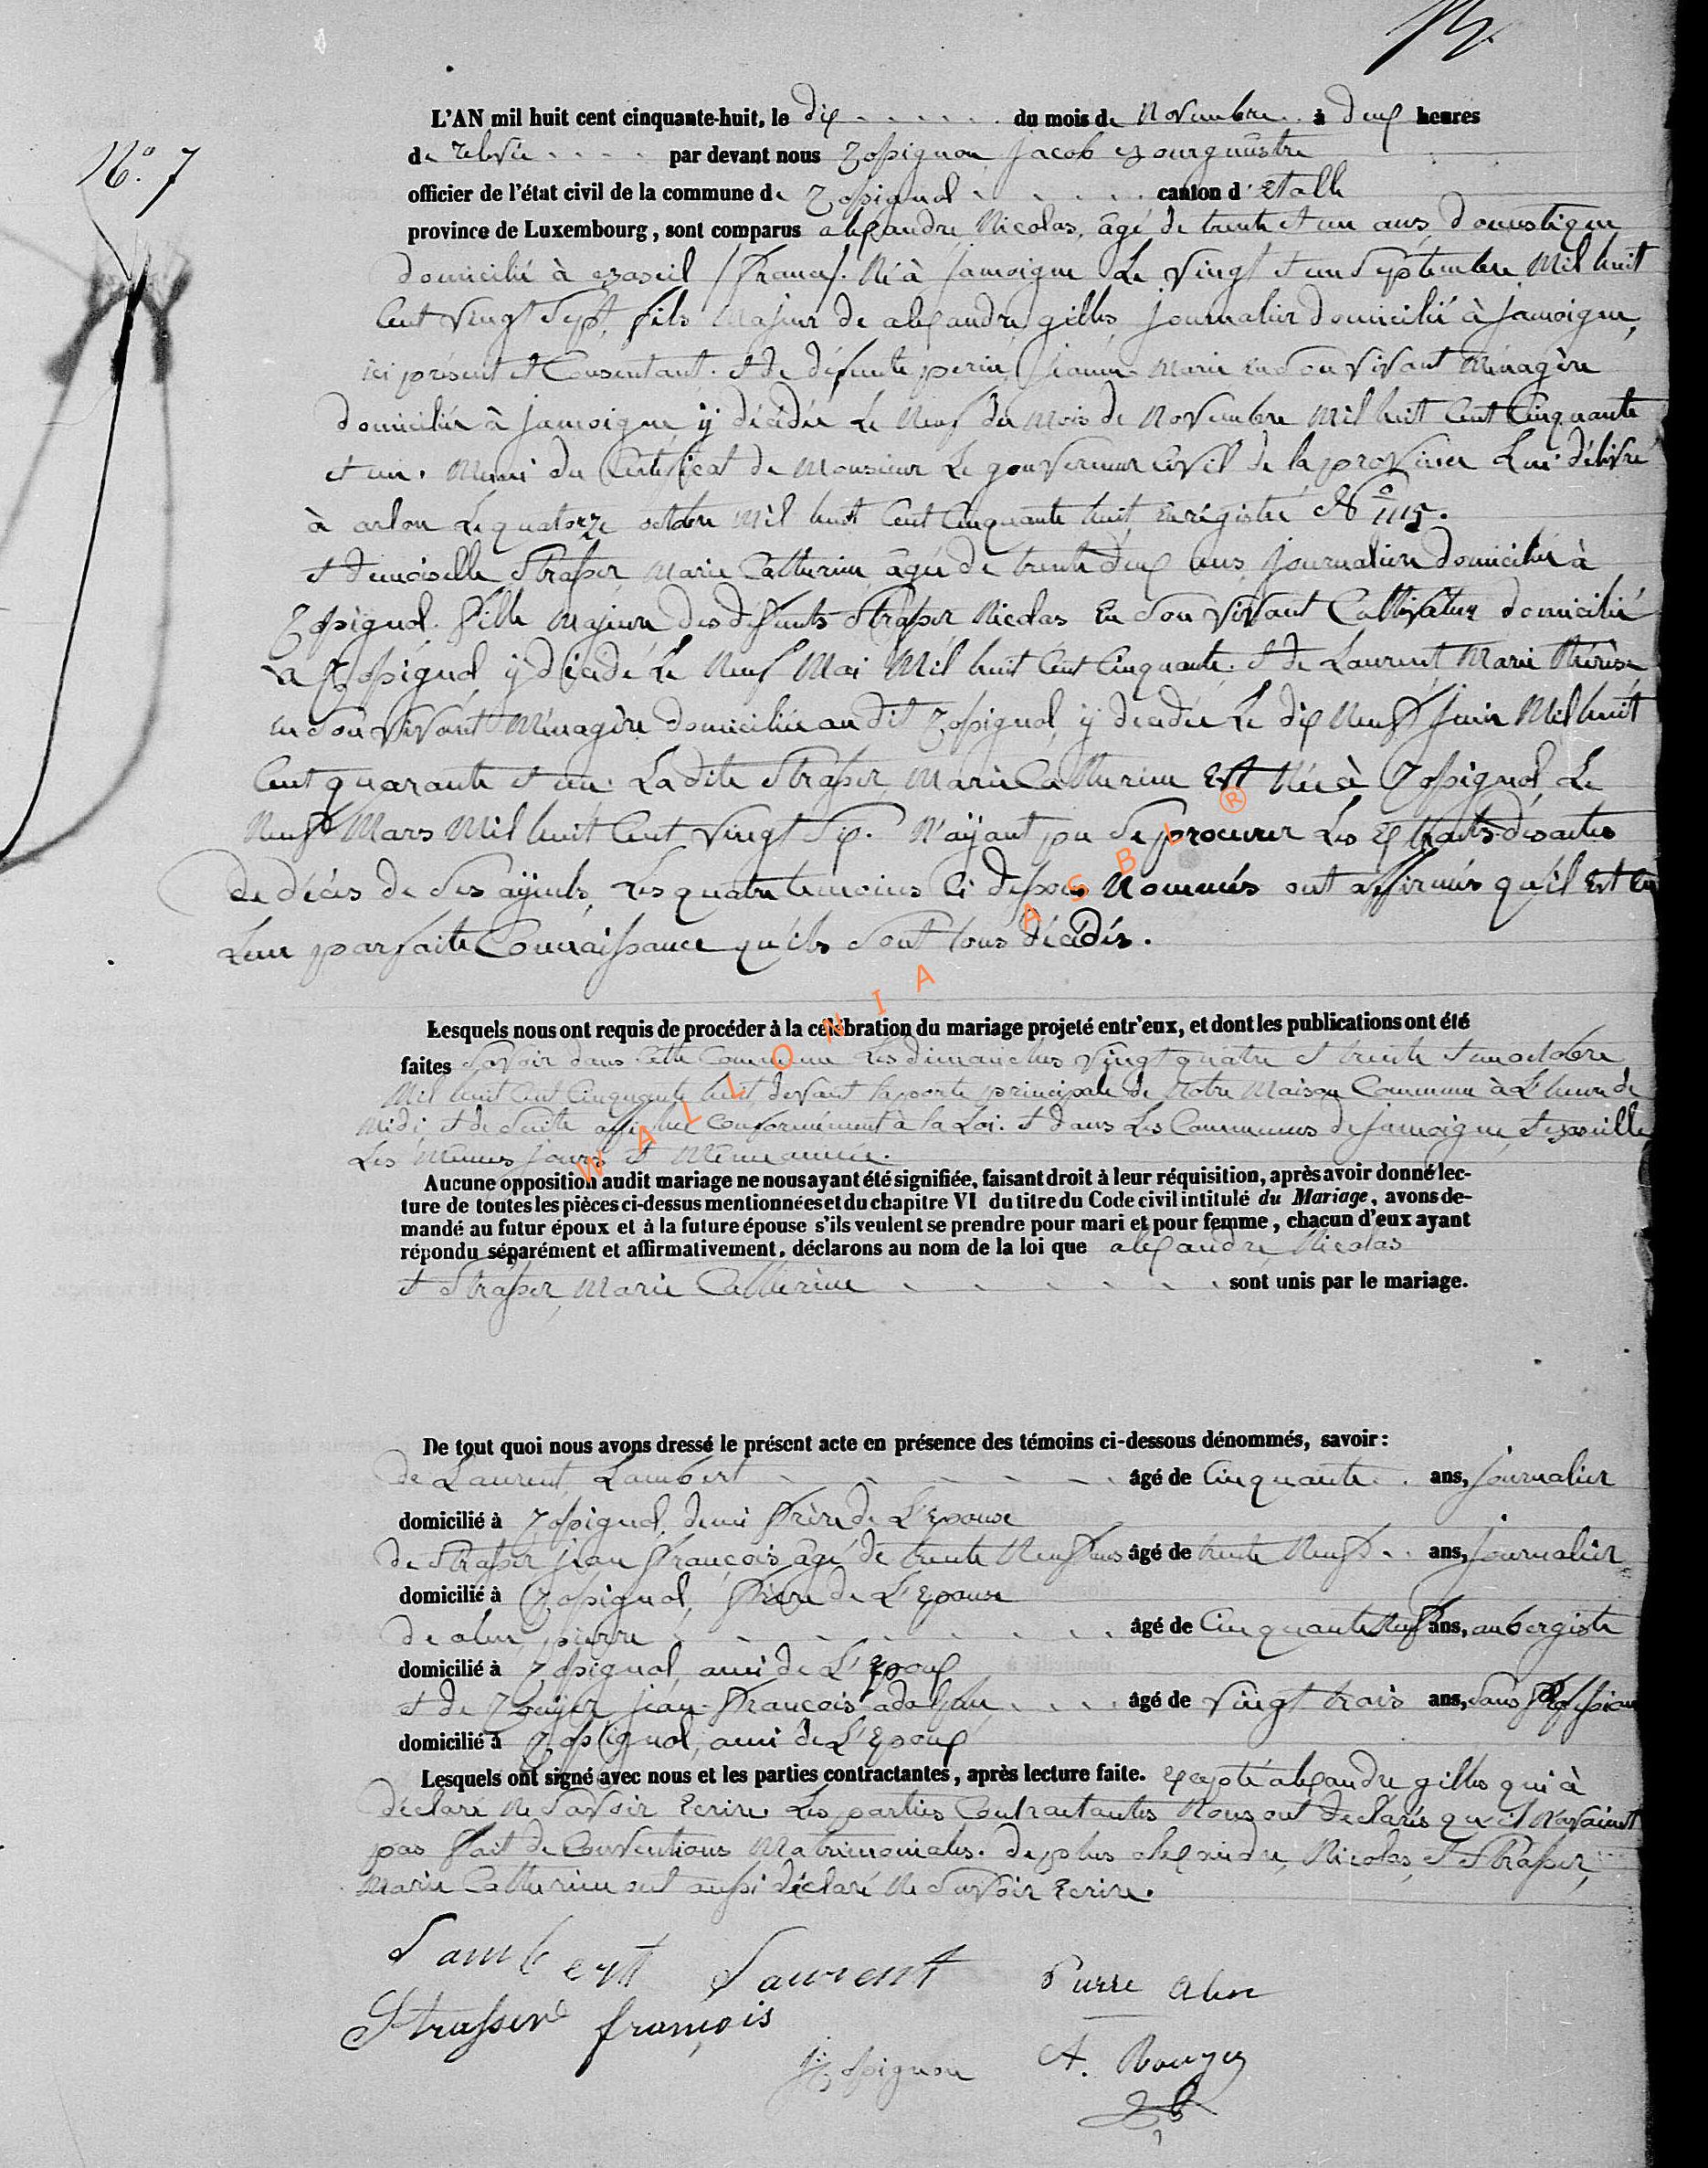 N° 7
L'AN mil huit cent cinquante-huit, le dix du mois de Novembre à deux heures
de relevée par devant nous Rossignon Jacob Bourgmestre
officier de l'état civil de la commune de Rossignol canton d'Etalle
province de Luxembourg, sont comparus alexandre Nicolas, âgé de trente et un ans, domestique
domicilié à Bazeil (France). Né à Jamoigne Le vingt et un Septembre Mil huit
Cent vingt Sept, fils Majeur de alexandre gilles, journalier domicilié à Jamoigne,
ici présent et Consentant. et de défunte perin, Jeanne Marie En Son vivant Ménagère
domiciliée à Jamoigne ÿ décédée Le Neuf du Mois de Novembre Mil huit Cent Cinquante
et un. Muni du Certificat de Monsieur Le gouverneur Civil de la province Lui délivré
à arlon Le quatorze octobre Mil huit Cent Cinquante huit Enregistré N° 1115.
et demoiselle Strasser Marie Catherine âgée de trente deux ans, journalière domiciliée à
Rossignol. fille Majeure des défunts Strasser Nicolas En Son vivant Cultivateur domicilié
à Rossignol ÿ décédé Le Neuf Mai Mil huit Cent Cinquante. et de Laurent, Marie Thérèse
En Son vivant Ménagère domiciliée au dit Rossignol, ÿ décédée Le dix Neuf Juin Mil huit
Cent quarante et un. La dite Strasser, Marie Catherine Est Née à Rossignol, Le
Neuf Mars Mil huit Cent vingt Six. N'aÿant pu Se procurer Les Extraits des actes
de décès de Ses aÿeuls, Les quatre temoins Ci dessous Nommés ont affirmés qu'il Est En
Leur parfaite Connaissance qu'ils Sont tous décédés.
WALLONIA ASBL ®
Lesquels nous ont requis de procéder à la célébration du mariage projeté entr'eux, et dont les publications ont été
faites Savoir dans Cette Commune Les dimanches vingt quatre et trente et un octobre
Mil huit Cent Cinquante huit, devant la porte principale de Notre Maison Commune à L'heure de
Midi et de Suite affichée Conformément à la Loi. et dans Les Communes de Jamoigne, et Bazeille
Les Mêmes jours et Même année.
Aucune opposition audit mariage ne nous ayant été signifiée, faisant droit à leur réquisition, après avoir donné lec-
ture de toutes les pièces ci-dessus mentionnées et du chapitre VI du titre du Code civil intitulé du Mariage, avons de-
mandé au futur époux et à la future épouse s'ils veulent se prendre pour mari et pour femme, chacun d'eux ayant
répondu séparément et affirmativement, déclarons au nom de la loi que alexandre Nicolas
et Strasser, Marie Catherine sont unis par le mariage.
De tout quoi nous avons dressé le présent acte en présence des témoins ci-dessous dénommés, savoir:
de Laurent, Lambert âgé de Cinquante ans, journalier
domicilié à Rossignol, demi frère de L'Epouse
de Strasser jean françois âgé de trente Neuf ans âgé de trente Neuf ans, journalier
domicilié à Rossignol, frère de L'Epouse
de alen, pierre âgé de Cinquante Neuf ans, aubergiste
domicilié à Rossignol, ami de L'Epoux
et de Rouyer jean-françois adolphe âgé de vingt trois ans, Sans Profession
domicilié à Rossignol, ami de L'Epoux
Lesquels ont signé avec nous et les parties contractantes, après lecture faite. Excepté alexandre gilles qui à
déclaré Ne Savoir Ecrire. Les parties Contractantes Nous ont déclarés qu'il N'avaient
pas fait de Conventions Matrimoniales. de plus alexandre, Nicolas, et Strasser,
Marie Catherine ont aussi déclaré Ne Savoir Ecrire.
Lambert Laurent Pierre Alen
Strasser françois
Rossignon A. Rouyer